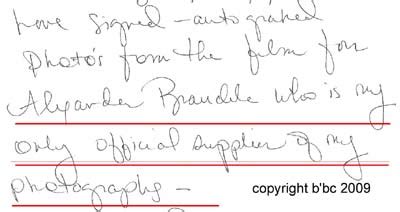 have signed - autographed
Photo's from the film for
Alexander Braudile who is my
only official supplier of my
photographs -
copyright b'bc 2009